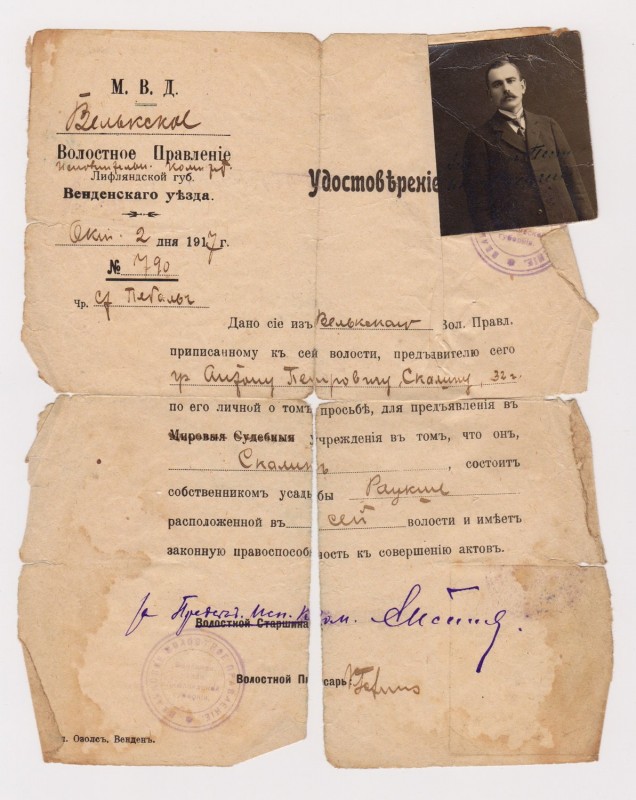 М. В. Д.
Велькское
Волостное Правленіе
Исполнительн. Комит.
Лифляндской губ.
Венденскаго уѣзда.
Окт. 2 дня 1917 г.
№ 790
Чр. Ст Пебальг
Удостовѣреніе
Дано сіе изъ Велькскаго Вол. Правл.
приписанному къ сей волости, предъявителю сего
гр. Антону Петровичу Скалину, 32 г.
по его личной о томъ просьбѣ, для предъявленія въ
Мировыя Судебныя учрежденія въ томъ, что онъ,
Скалинъ, состоитъ
собственникомъ усадьбы
расположенной въ сей волости и имѣетъ
законную правоспособность къ совершенію актовъ.
Предсѣд. Исп. Ком.
Волостной Старшина
Волостной Писарь
ВОЛОСТНОЕ ПРАВЛЕНІЕ
Озолсъ, Венденъ.